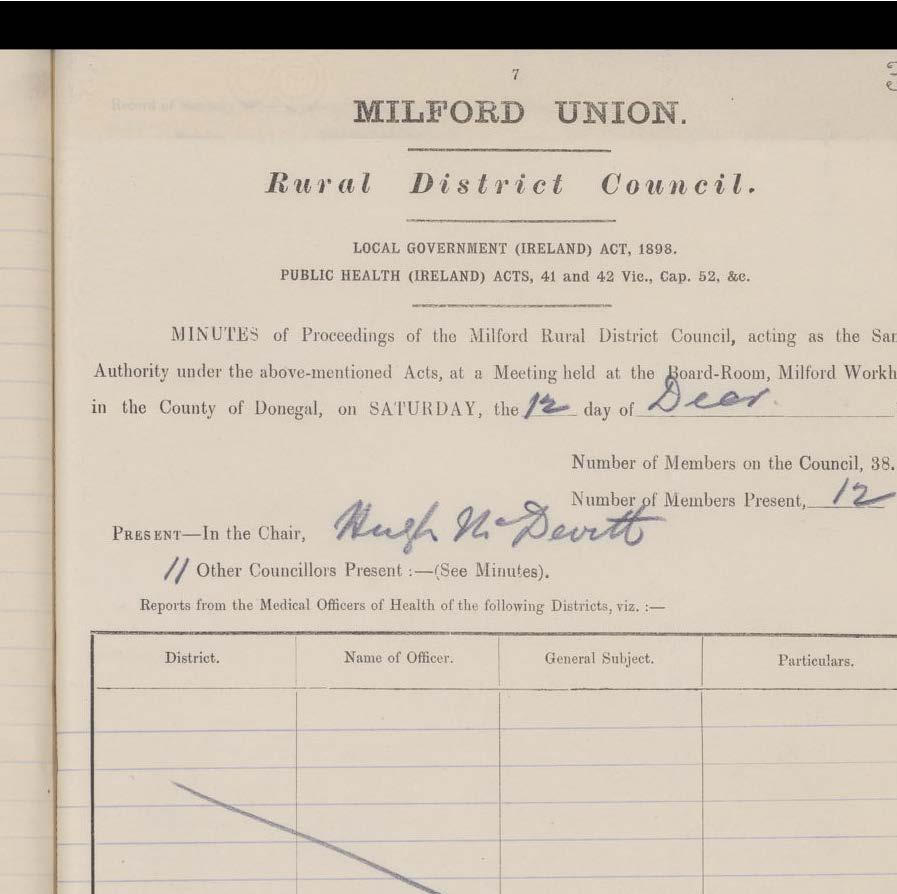 7
MILFORD UNION.
Rural District Council.
LOCAL GOVERNMENT (IRELAND) ACT, 1898.
PUBLIC HEALTH (IRELAND) ACTS, 41 and 42 Vic., Cap. 52, &c.
MINUTES of Proceedings of the Milford Rural District Council, acting as the San
Authority under the above-mentioned Acts, at a Meeting held at the Board-Room, Milford Workh
in the County of Donegal, on SATURDAY, the 12 day of Decr.
Number of Members on the Council, 38.
Number of Members Present, 12
PRESENT—In the Chair, Hugh McDevitt
11 Other Councillors Present :—(See Minutes).
Reports from the Medical Officers of Health of the following Districts, viz. :—
District. Name of Officer. General Subject. Particulars.